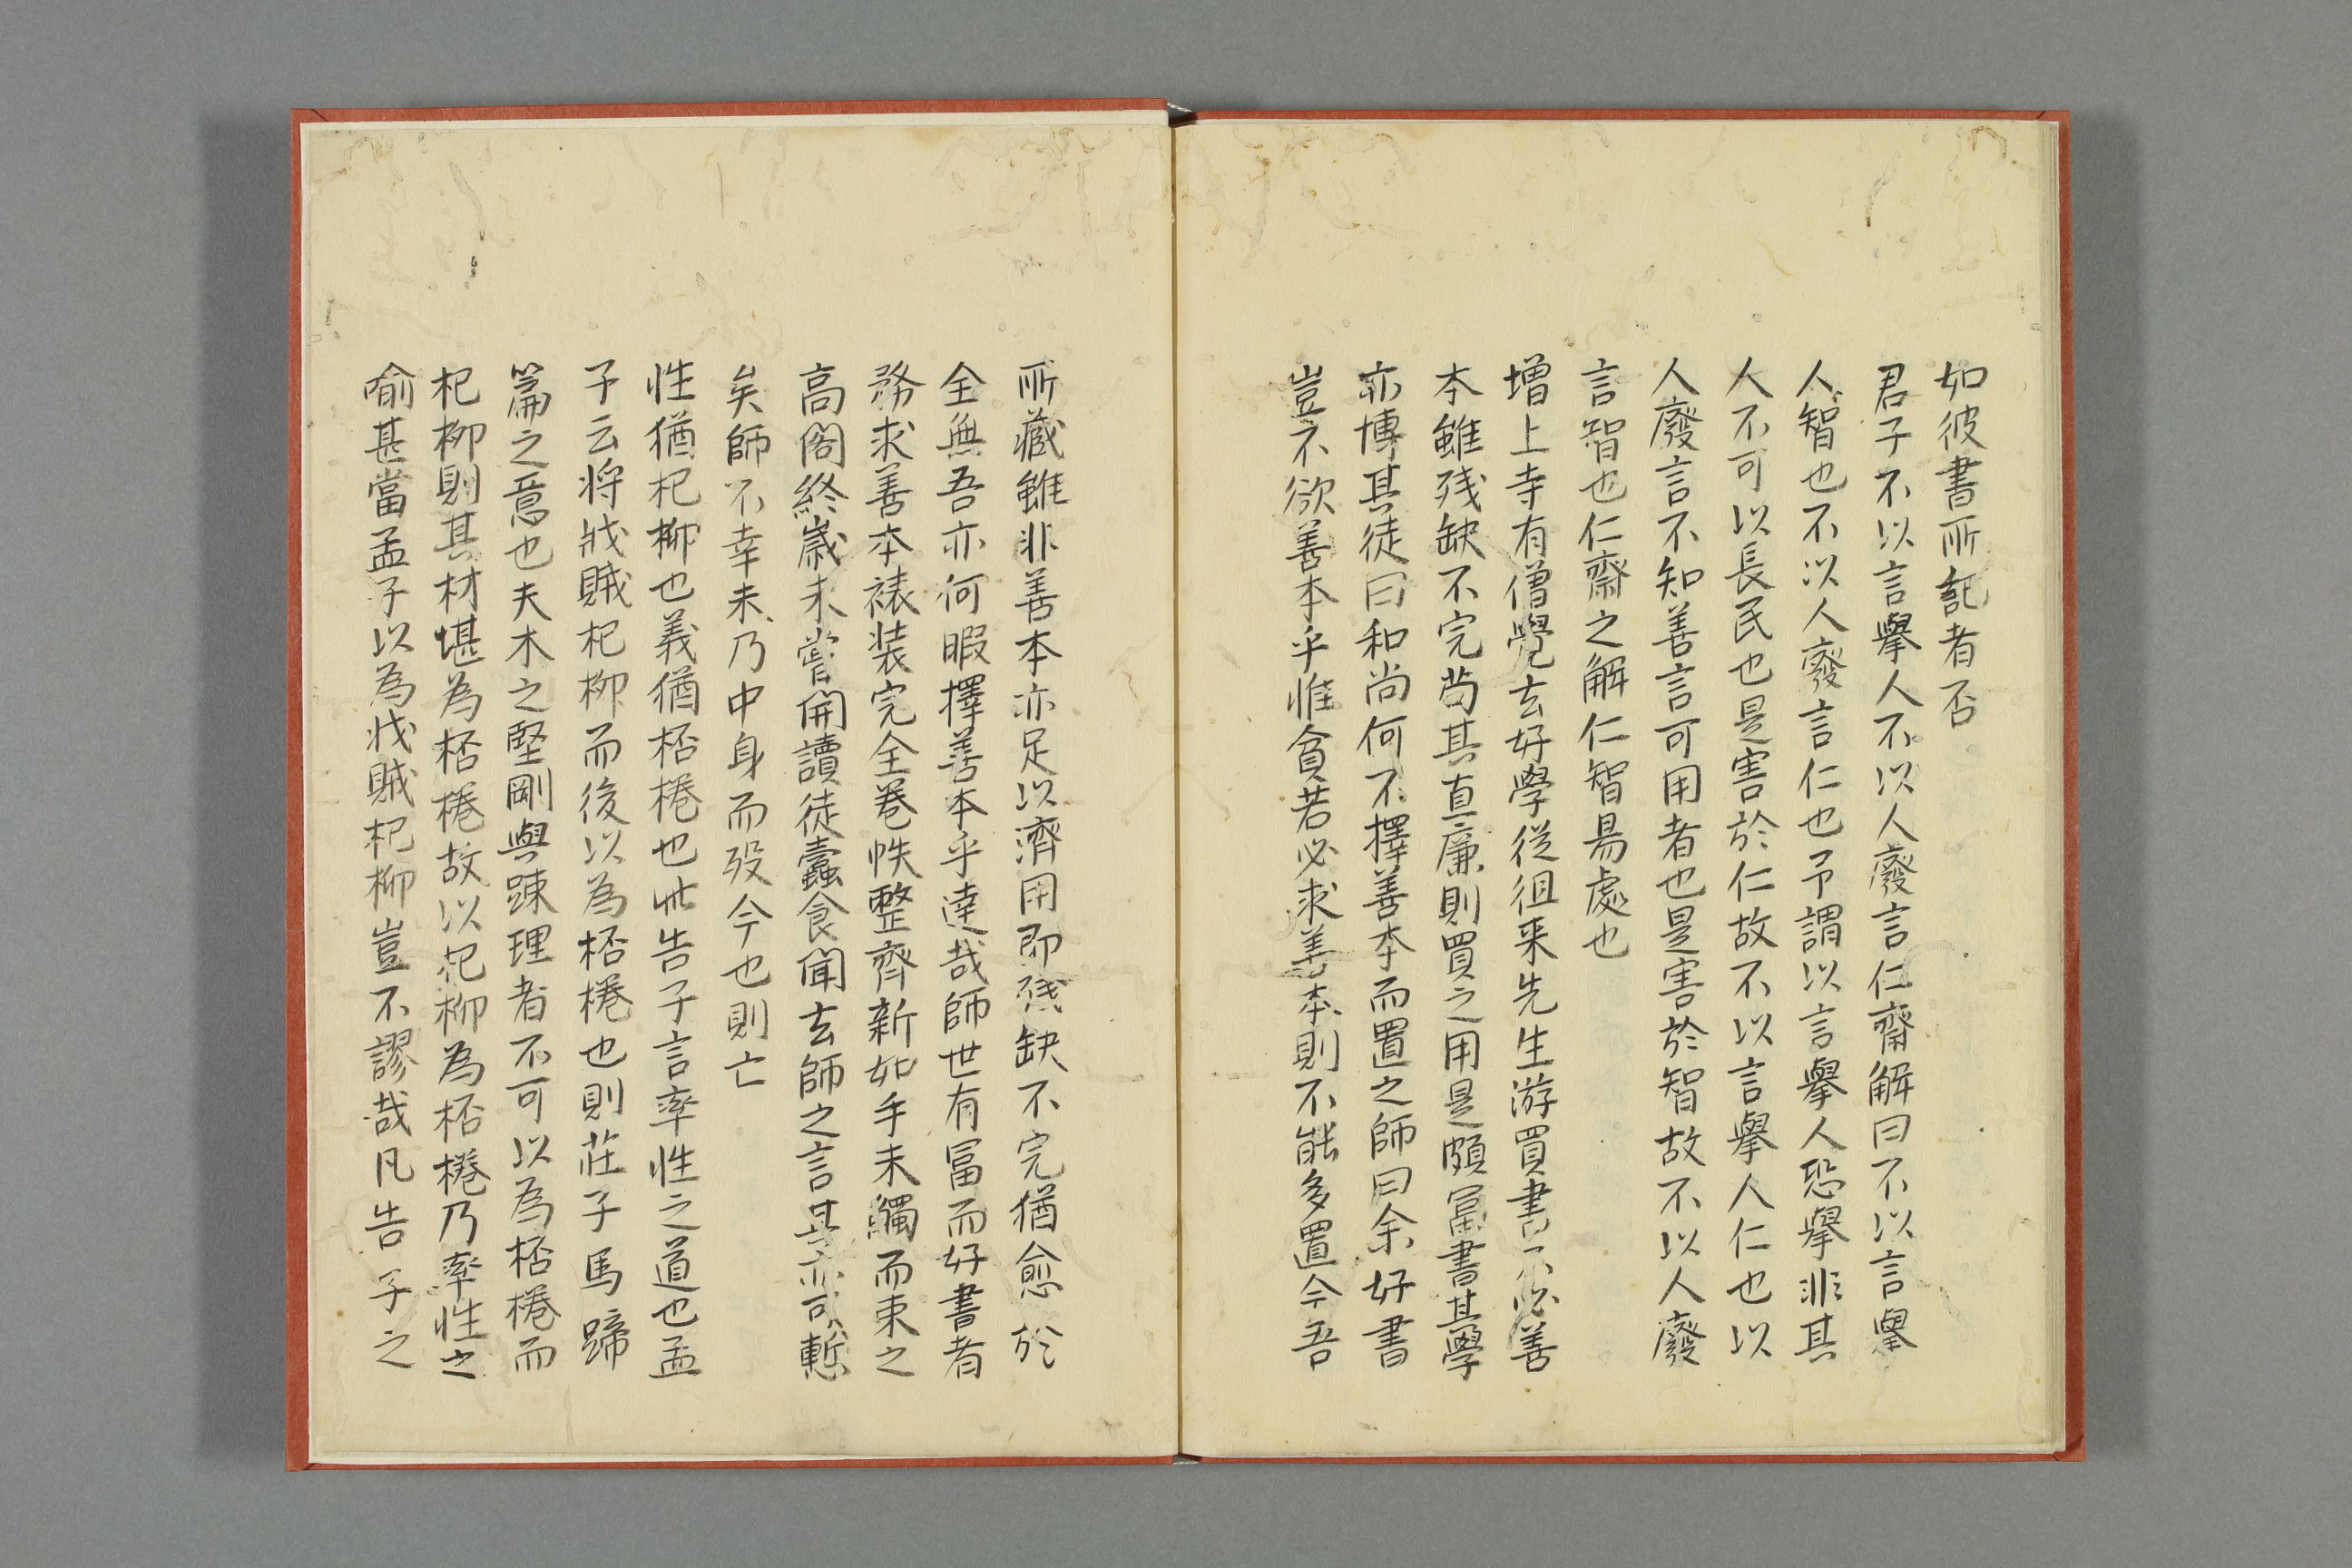 如彼書所記者否
君子不以言擧人不以人廢言仁齋解曰不以言擧
人智也不以人廢言仁也予謂以言擧人恐擧非其
人不可以長民也是害於仁故不以言擧人仁也以
人廢言不知善言可用者也是害於智故不以人廢
言智也仁齋之解仁智易處也
增上寺有僧覺玄好學從徂来先生游買書不必善
本雖残缺不完苟其直廉則買之用是頗冨書其學
亦博其徒曰和尚何不擇善本而置之師曰余好書
豈不欲善本乎惟貪若必求善本則不能多置今吾
所藏雖非善本亦足以濟用即残缺不完猶愈於
全無吾亦何暇擇善本乎達哉師世有冨而好書者
務求善本裱装完全巻帙整齊新如手未觸而束之
高閣終歳未嘗開讀徒蠧食聞玄師之言其亦可慙
矣師不幸未乃中身而殁今也則亡
性猶杞柳也義猶桮棬也此告子言率性之道也孟
子云将戕賊杞柳而後以為桮棬也則莊子馬蹄
篇之意也夫木之堅剛與踈理者不可以為桮棬而
杞柳則其材堪為桮棬故以杞柳為桮棬乃率性之
喻甚當孟子以為戕賊杞柳豈不謬哉凡告子之